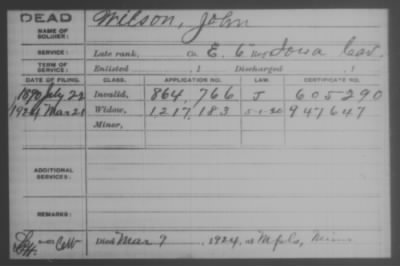 DEAD
NAME OF SOLDIER: Wilson, John
SERVICE: Late rank, Co. E, 6" Reg Iowa Cav.
TERM OF SERVICE: Enlisted , 1 Discharged , 1
DATE OF FILING. CLASS. APPLICATION NO. LAW. CERTIFICATE NO.
1890 July 22 Invalid, 864,766 J 605290
1924 Mar 21 Widow, 1,217,183 5-1-20 947647
Minor,
ADDITIONAL SERVICES:
REMARKS:
Died Mar 7, 1924, at Mpls, Minn